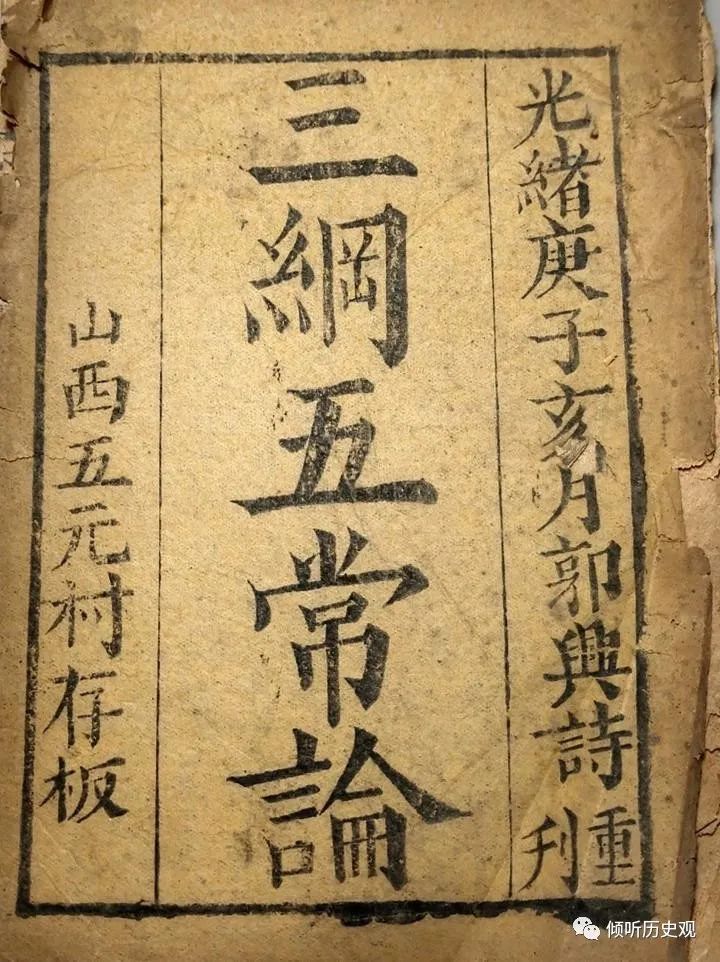 光緒庚子亥月郭興詩重刊
三綱五常論
山西五元村存板
倾听历史观